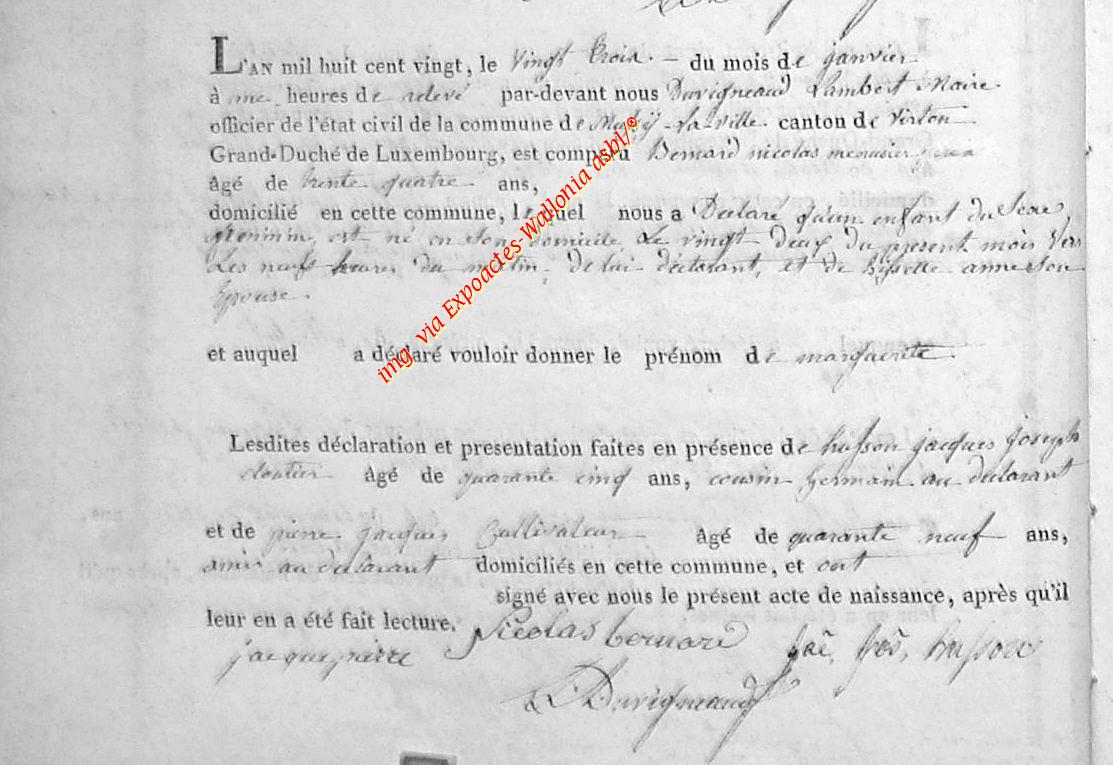 L'AN mil huit cent vingt, le vingt trois.- du mois de janvier
à une heures de relevé par-devant nous Duvigneaud Lambert Maire
officier de l'état civil de la commune de Mussy-la-ville. canton de Virton
Grand-Duché de Luxembourg, est comparu Bernard nicolas menusier
âgé de trente quatre ans,
domicilié en cette commune, lequel nous a Déclaré qu'un enfant du Sexe
féminin, est né en son domicile, Le vingt deux du présent mois vers
Les neuf heures du matin, de lui déclarant, et de anne son
Epouse.
et auquel a déclaré vouloir donner le prénom de marguerite.
Lesdites déclaration et presentation faites en présence de husson jacques joseph
cloutier âgé de quarante cinq ans, cousin germain au déclarant
et de pierre jacques Cultivateur âgé de quarante neuf ans,
amis au déclarant domiciliés en cette commune, et ont
signé avec nous le présent acte de naissance, après qu'il
leur en a été fait lecture. Nicolas bernard jac jos husson
jacque pierre
L Duvigneaud
img via Expoactes-Wallonia asbl/©